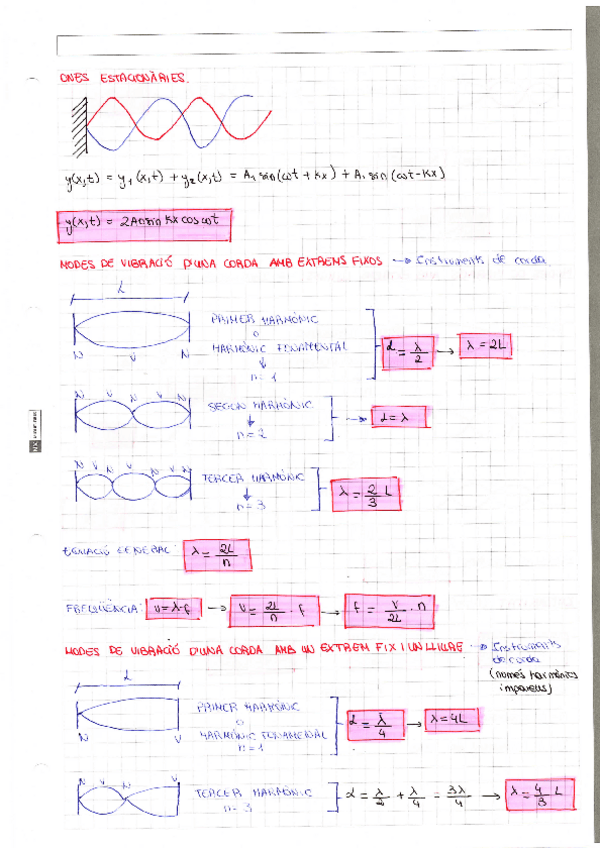 ONES ESTACIONÀRIES.
y(x,t) = y₁(x,t) + y₂(x,t) = A₁ sin(ωt + kx) + A₁ sin(ωt - kx)
y(x,t) = 2A sin kx cos ωt
MODES DE VIBRACIÓ D'UNA CORDA AMB EXTREMS FIXOS → Instruments de corda
L
PRIMER HARMÒNIC
o
HARMÒNIC FONAMENTAL
n = 1
L = λ/2 → λ = 2L
N V N
N V N V N
SEGON HARMÒNIC
n = 2
→ L = λ
N V N V N V N
TERCER HARMÒNIC
n = 3
λ = 2/3 L
EQUACIÓ GENERAL λ = 2L/n
FREQÜÈNCIA: v = λ·f → v = 2L/n · f → f = v/2L · n
MODES DE VIBRACIÓ D'UNA CORDA AMB UN EXTREM FIX I UN LLIURE → Instruments
de corda
(només harmònics
imparells)
L
PRIMER HARMÒNIC
o
HARMÒNIC FONAMENTAL
n = 1
L = λ/4 → λ = 4L
N V
N V N V
TERCER HARMÒNIC
n = 3
L = λ/2 + λ/4 = 3λ/4 → λ = 4/3 L